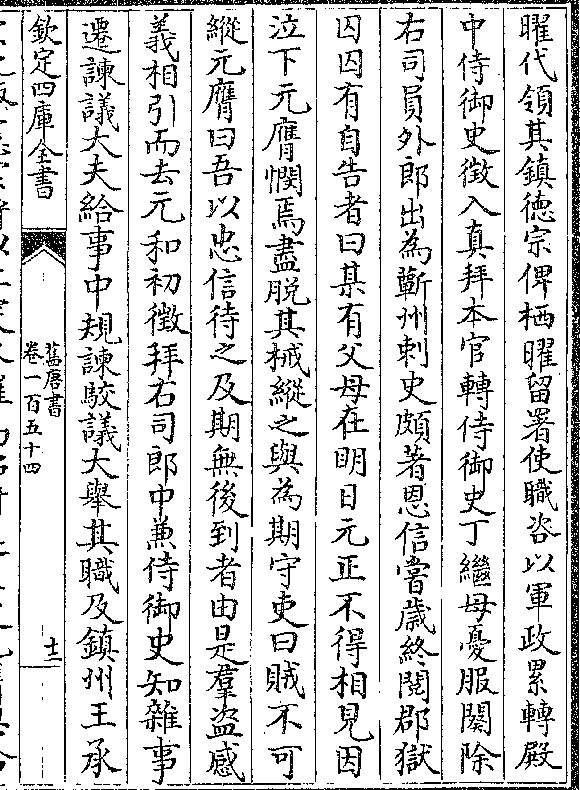 曜代領其鎮德宗俾栖曜留署使職咨以軍政累轉殿
中侍御史徴入真拜本官轉侍御史丁繼母憂服闋除
右司員外郎出為蘄州刺史頗著恩信嘗歲終閱郡獄
囚囚有自告者曰某有父母在明日元正不得相見因
泣下元膺憫焉盡脫其械縱之與為期守吏曰賊不可
縱元膺曰吾以忠信待之及期無後到者由是羣盜感
義相引而去元和初徴拜右司郎中兼侍御史知雜事
遷諫議大夫給事中規諫駮議大舉其職及鎮州王承
欽定四庫全書
舊唐書
卷一百五十四
十二